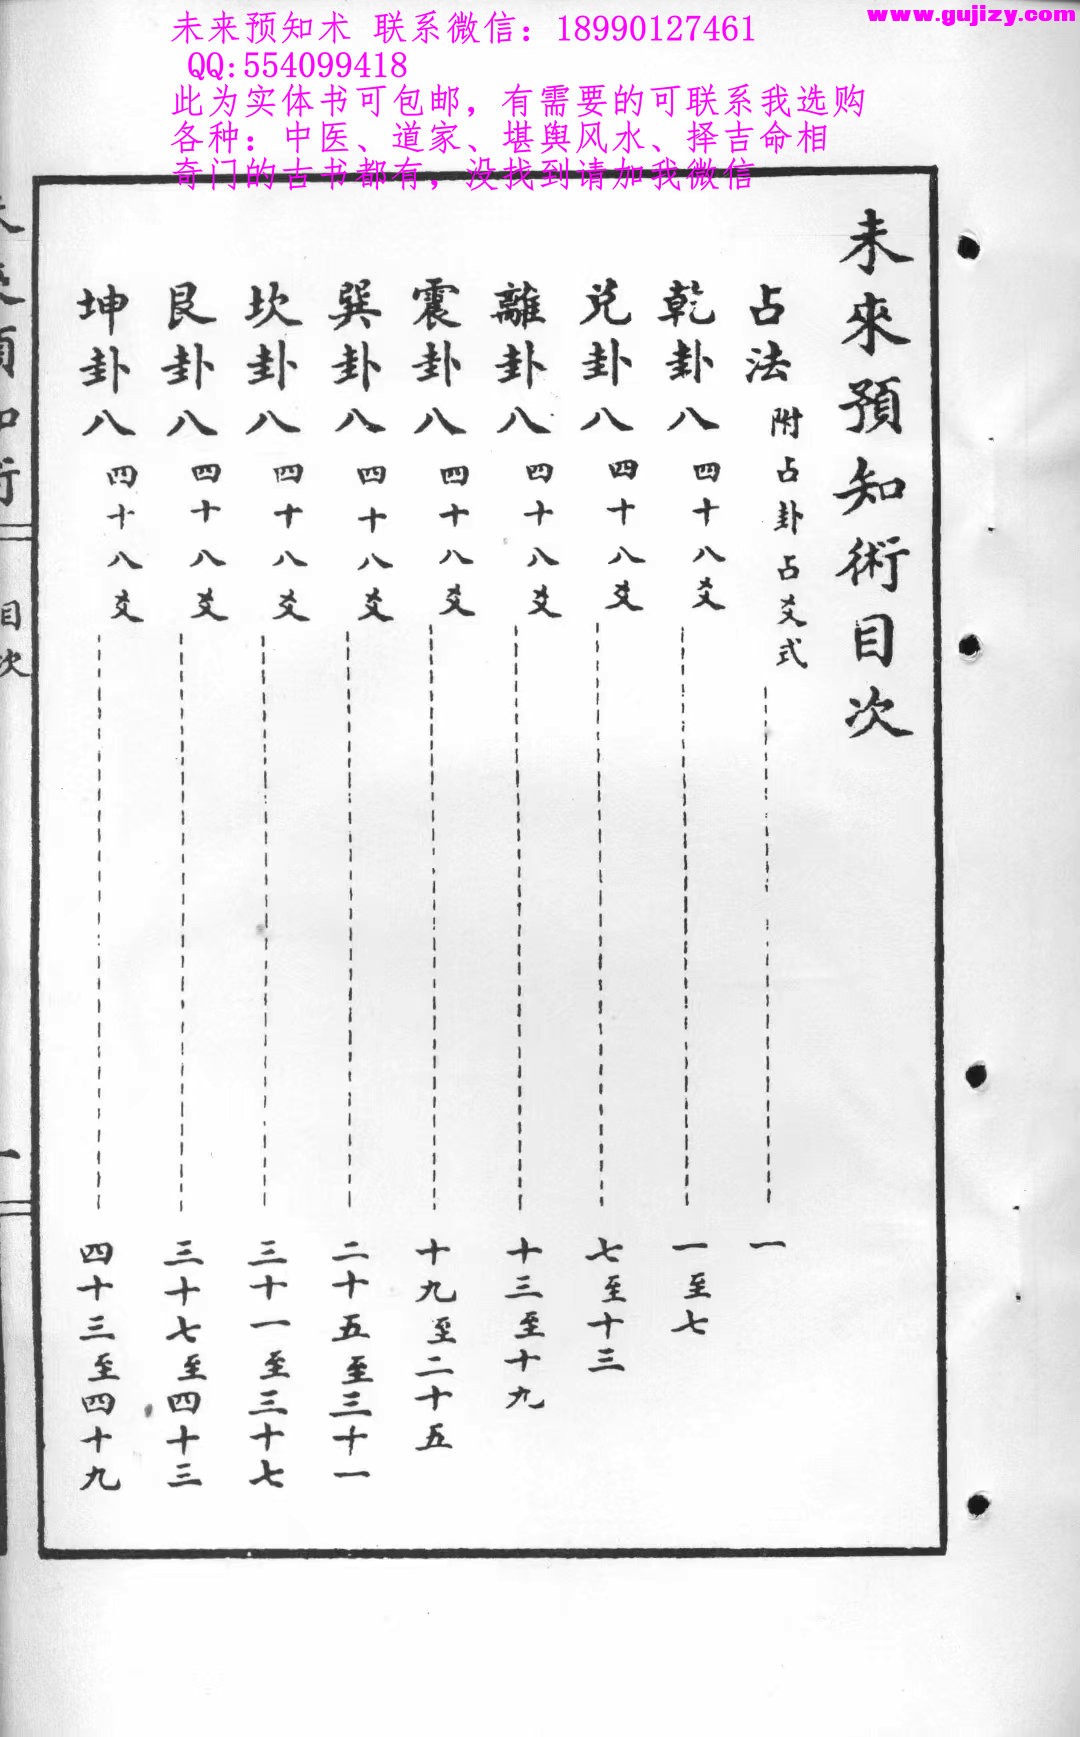 未来预知术 联系微信：18990127461
QQ:554099418
此为实体书可包邮，有需要的可联系我选购
各种：中医、道家、堪舆风水、择吉命相
奇门的古书都有，没找到请加我微信
www.gujizy.com
未來預知術目次
占法 附占卦占爻式 一
乾卦八 四十八爻 一至七
兌卦八 四十八爻 七至十三
離卦八 四十八爻 十三至十九
震卦八 四十八爻 十九至二十五
巽卦八 四十八爻 二十五至三十一
坎卦八 四十八爻 三十一至三十七
艮卦八 四十八爻 三十七至四十三
坤卦八 四十八爻 四十三至四十九
目次